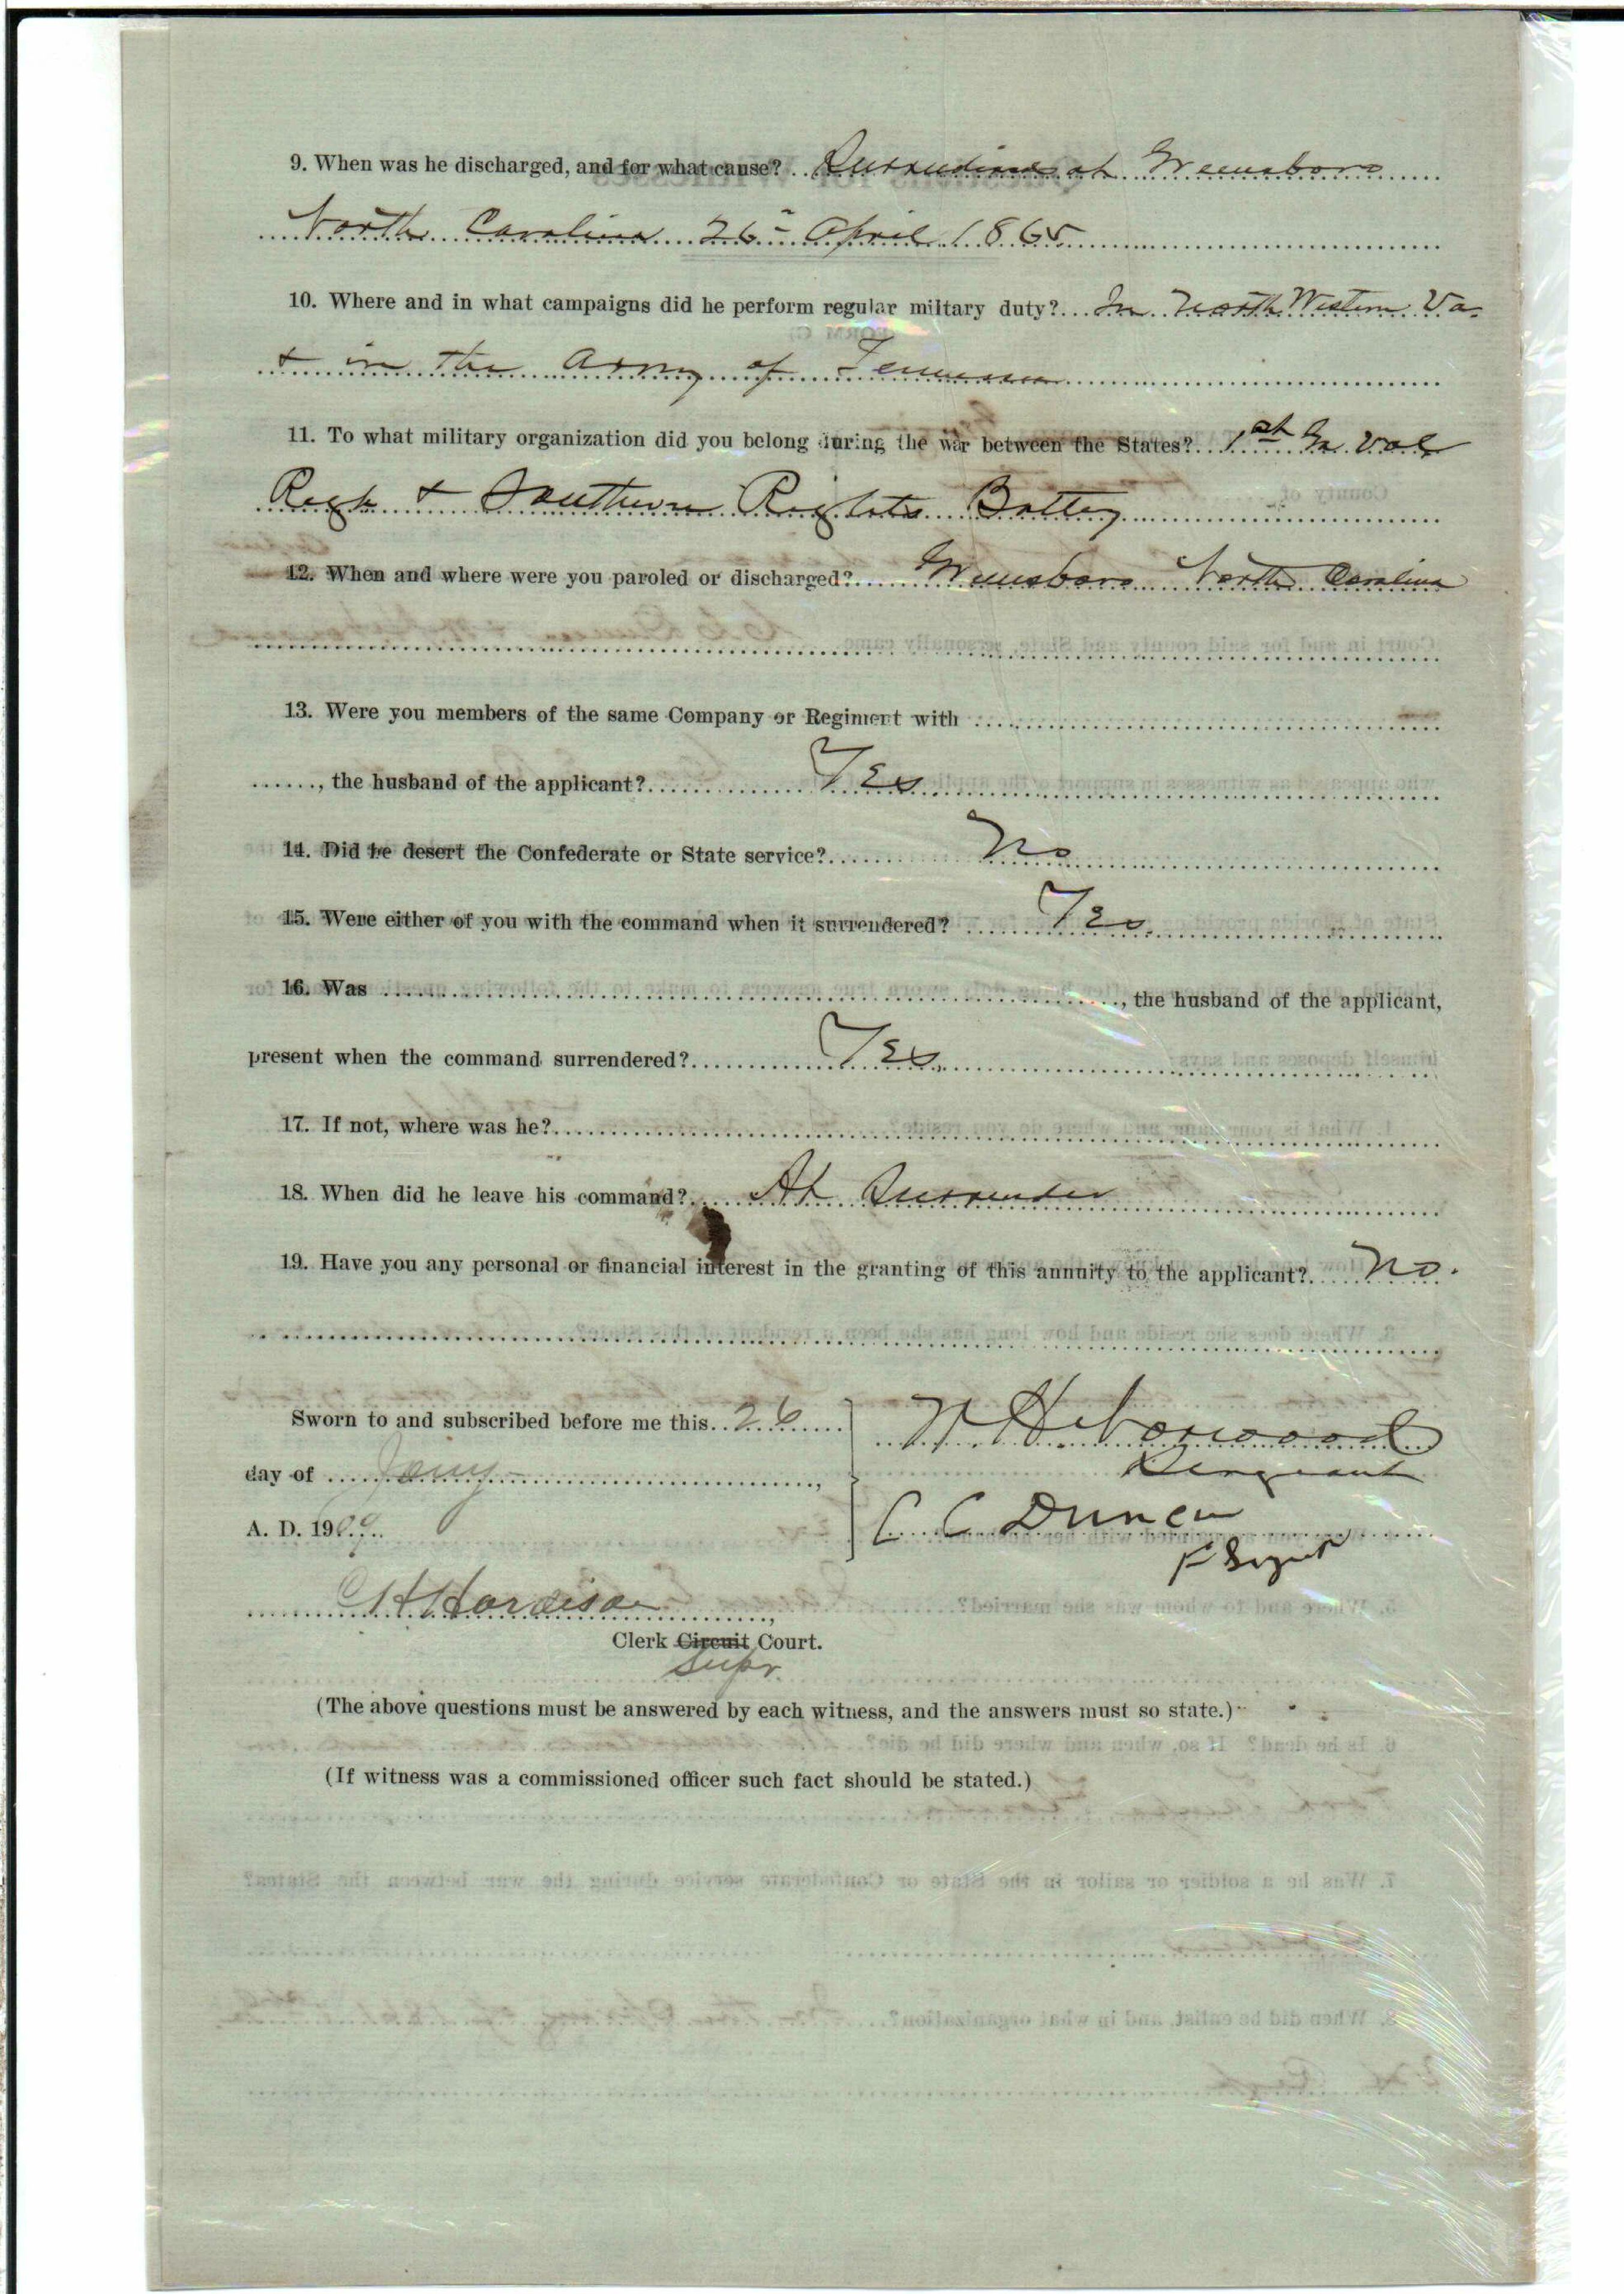 9. When was he discharged, and for what cause? Surrendered at Greensboro
North Carolina 26" April 1865
10. Where and in what campaigns did he perform regular miltary duty? In North Western Va.
+ in the Army of Tennessee
11. To what military organization did you belong during the war between the States? 1st Ga Vol
Regt + Southern Rights Battery
12. When and where were you paroled or discharged? Greensboro North Carolina
13. Were you members of the same Company or Regiment with
, the husband of the applicant? Yes
14. Did he desert the Confederate or State service? No
15. Were either of you with the command when it surrendered? Yes.
16. Was , the husband of the applicant,
present when the command surrendered? Yes.
17. If not, where was he?
18. When did he leave his command? At Surrender
19. Have you any personal or financial interest in the granting of this annuity to the applicant? No.
Sworn to and subscribed before me this 26
day of Jany ,
A. D. 1909
Norwood
Sergeant
C C Duncan
C H Hardison
Clerk Circuit Court.
Supr.
(The above questions must be answered by each witness, and the answers must so state.)
(If witness was a commissioned officer such fact should be stated.)